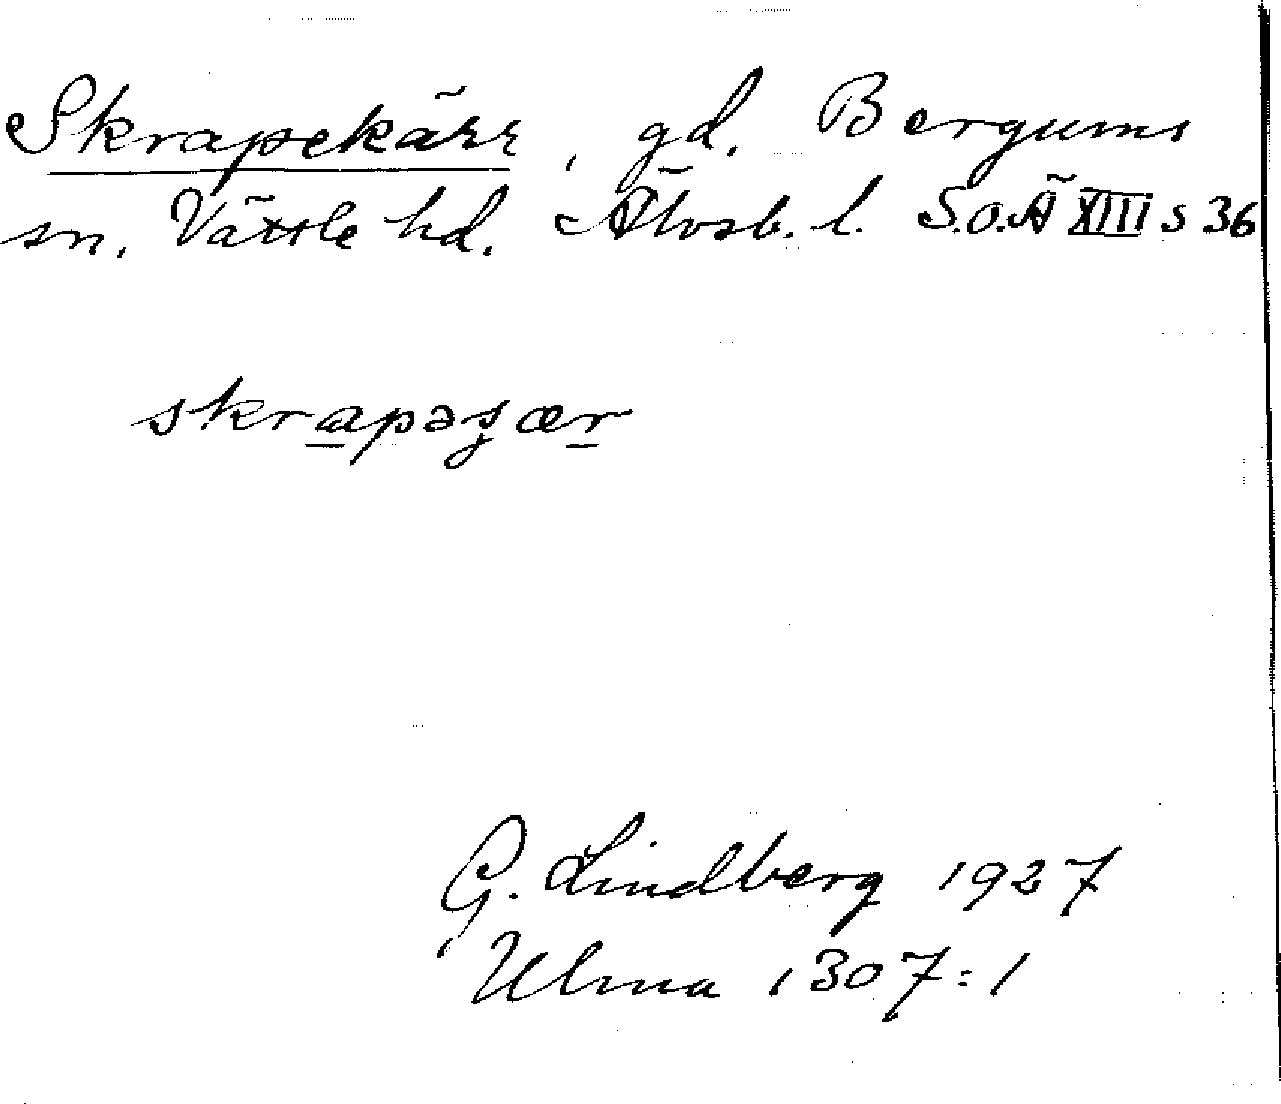 Skrapekärr, gd. Bergums
sn. Vättle hd. Älvsb. l. S.O.Ä XIII s 36
skrapəʂær
G. Lindberg 1927
Ulma 1307:1